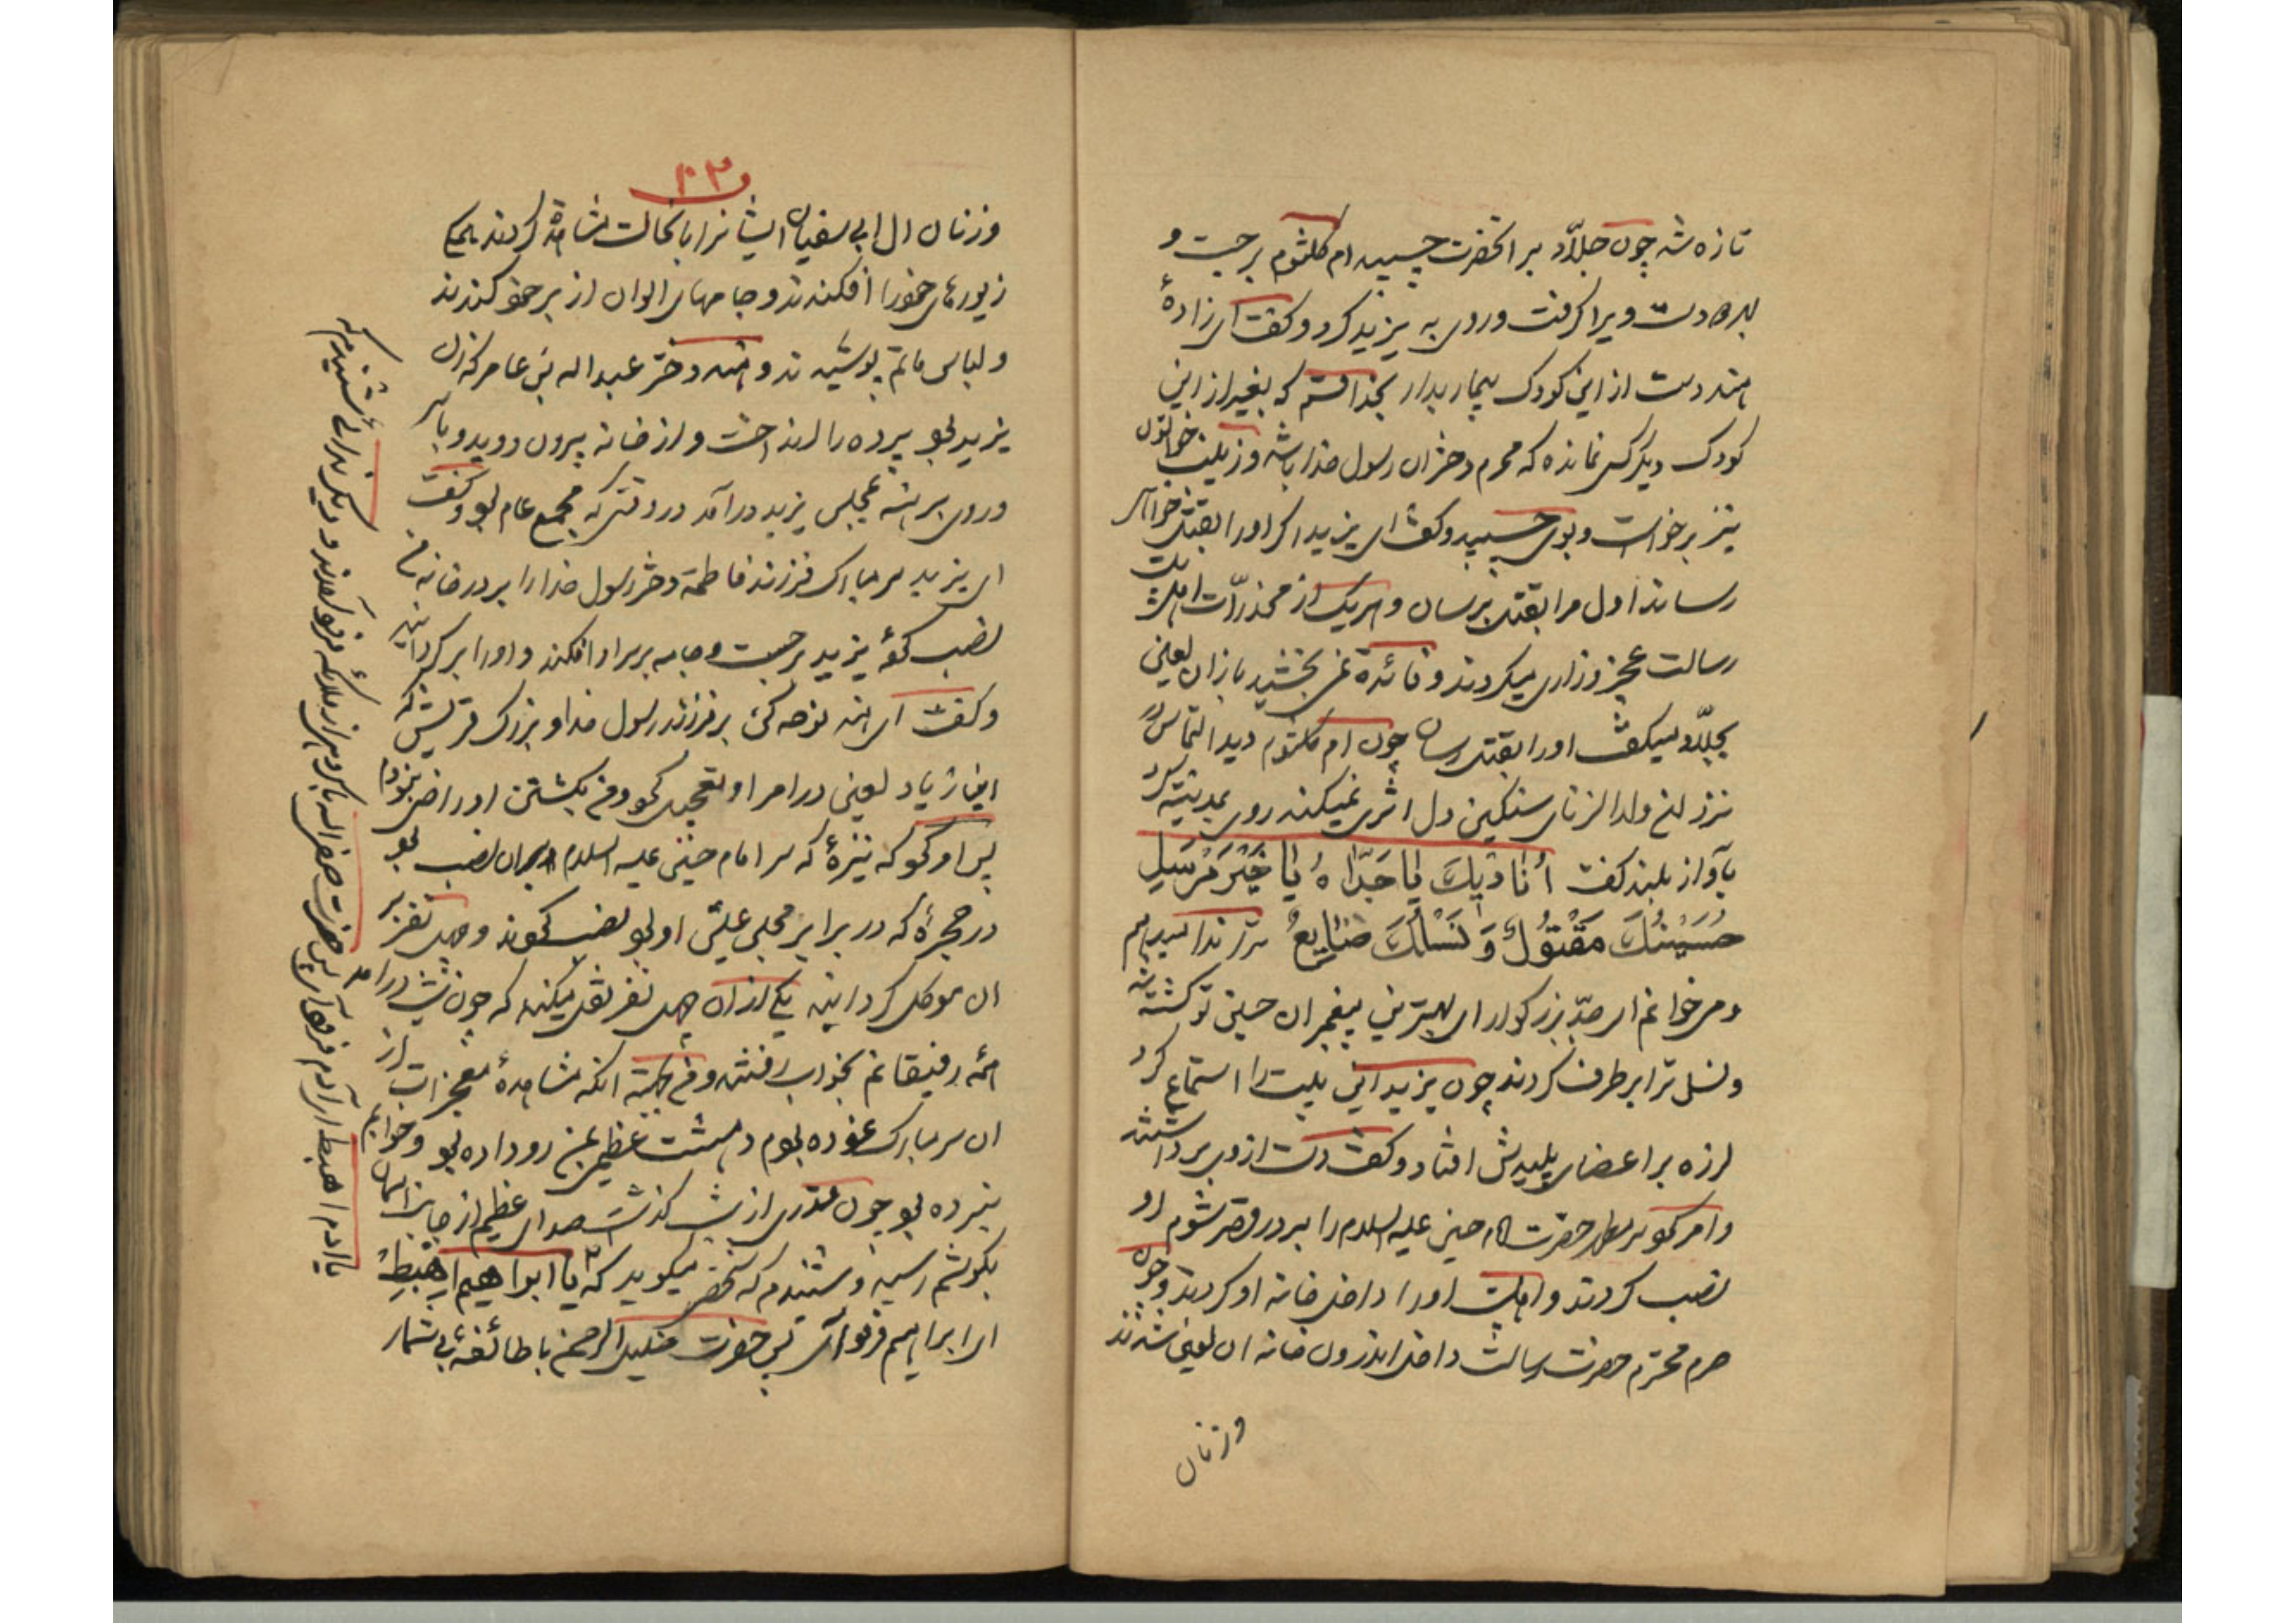 تازه شد چون جلّاد بر انحضرت چسبید ام کلثوم برجست و
دست ویرا کرفت وروی به یزید کرد و کفت ای زادهٔ
هند دست از این کودک بیمار بدار بخدا قسم که بغیر از این
کودک دیکر کس نمانده که محرم دختران رسول خدا باشد و زینب خواتون
نیز برخواست و بوی چسبید و کفت ای یزید اکر او را بقتل خواهی
رساند اول مرا بقتل برسان و هریک از مخدرّات اهل بیت
رسالت عجز و زاری میکردند و فائدهٔ نمی بخشید بازان لعین
بجلّاد میکفت او را بقتل رسان چون ام کلثوم دید التماس
نزد ان ولد الزنای سنکین دل اثری نمیکند روی بمدینه کرد
بآواز بلند کفت أُنادیٖكَ یٰا جَدّاهُ یٰا خَیْرَ مُرْسَلِ
حُسَیْنُكَ مَقْتُولٌ وَ نَسْلُكَ ضٰایِعٌ ترا ندا میدهم
و میخوانم ای جدّ بزرکوار ای بهترین پیغمبران حسین تو کشته شد
و نسل ترا برطرف کردند چون یزید این بیت را استماع کرد
لرزه بر اعضای پلیدش افتاد و کفت دست از وی برداشتند
وامر نمود سر مطهر حضرت امام حسین علیه السلام را بر در قصر شوم او
نصب کردند و اهلبیت او را داخل خانه او کردند و چون
حرم محترم حضرت رسالت داخل اندرون خانه ان لعین شدند
وزنان
۱۰۳
وزنان ال ابی سفیان ایشانرا بانحالت مشاهده کردند همه
زیورهای خود را افکندند و جامهای الوان از بر خود کندند
و لباس ماتم پوشیدند و هند دختر عبداله بن عامر که زن
یزید بود پرده را انداخت و از خانه بیرون دوید و با سر
و روی برهنه بمجلس یزید درآمد در وقتی که مجمع عام بود و کفت
ای یزید سر مبارک فرزند فاطمه دختر رسول خدا را بر در خانه من
نصب کرده یزید برجست و جامه بر سر او افکند و او را برکردانید
و کفت ای هند نوحه کن بر فرزند رسول خدا و بزرک قریش که
ابن زیاد لعین در امر او تعجیل نمود و من بکشتن او راضی نبودم
پس امر نمود که نیزهٔ که سر امام حسین علیه السلام بران نصب بود
در حجرهٔ که در برابر مجلس عیش او بود نصب نمودند و چهل نفر بر
ان موکل کردانید یکی ازان چهل نفر نقل میکند که چون شب درامد
همه رفیقانم بخواب رفتند و من بجهت انکه مشاهدهٔ معجزات از
ان سر مبارک نموده بودم دهشت عظیمی بمن رو داده بود و خوابم
نبرده بود چون قدری از شب کذشت صدای عظیم از جانب اسمان
بکوشم رسید و شنیدم که شخصی میکوید که یٰا ابراهیم اِهْبِطْ
ای ابراهیم فرود آی پس حضرت خلیل الرحمن با طائفهٔ بی شمار
یا ادم اهبط ای آدم فرود آی پس حضرت صفی اله با کروهی از ملائکه فرود آمدند و دیکر ندائی شنیدم که